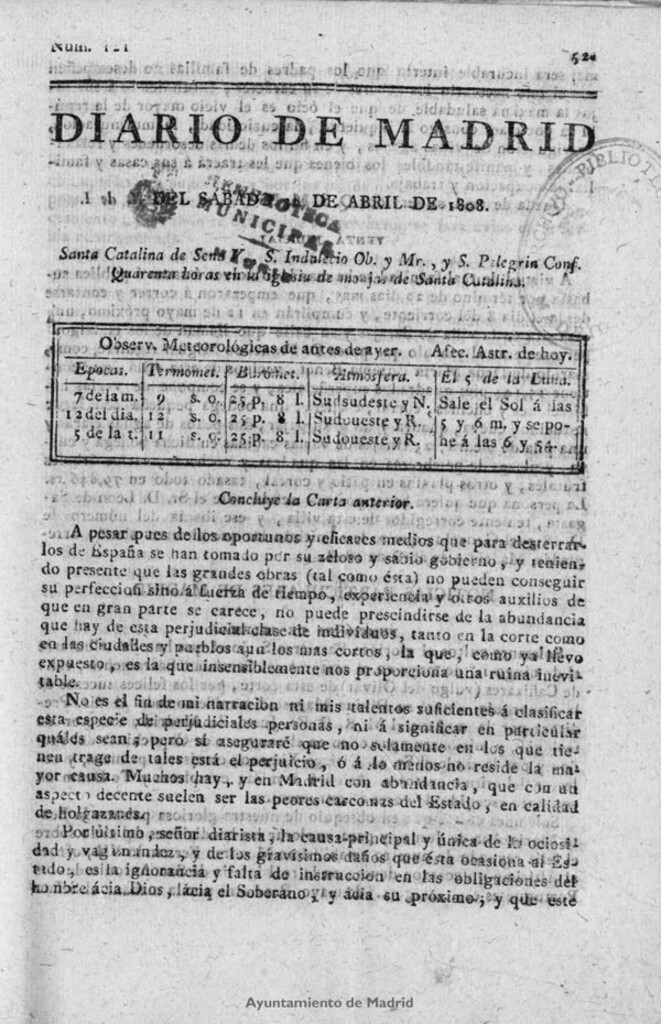 Núm. 121
521
DIARIO DE MADRID
DEL SÁBADO DE ABRIL DE 1808.
HEMEROTECA
MUNICIPAL
BIBLIOTE
Santa Catalina de Sena V., S. Indalecio Ob. y Mr., y S. Pelegrin Conf.
Quarenta horas en la iglesia de monjas de Santa Catalina.
Observ. Meteorológicas de antes de ayer. Afec. Astr. de hoy.
Epocas. Termomet. Baromet. Atmósfera. El 5 de la Luna.
7 de la m. 9 s. o. 25 p. 8 l. Sudsudeste y N. Sale el Sol á las
12 del dia. 12 s. o. 25 p. 8 l. Sudoueste y R. 5 y 6 m. y se po-
5 de la t. 11 s. o. 25 p. 8 l. Sudoueste y R. ne á las 6 y 54.
Concluye la Carta anterior.
A pesar pues de los oportunos y eficaces medios que para desterrar-
los de España se han tomado por su zeloso y sabio gobierno, y tenien-
do presente que las grandes obras (tal como ésta) no pueden conseguir
su perfeccion sino á fuerza de tiempo, experiencia y otros auxîlios de
que en gran parte se carece, no puede prescindirse de la abundancia
que hay de esta perjudicial clase de individuos, tanto en la corte como
en las ciudades y pueblos aun los mas cortos, la que, como ya llevo
expuesto, es la que insensiblemente nos proporciona una ruina inevi-
table.
No es el fin de mi narracion ni mis talentos suficientes á clasificar
esta especie de perjudiciales personas, ni á significar en particular
quáles sean; pero sí aseguraré que no solamente en los que tie-
nen trage de tales está el perjuicio, ó á lo menos no reside la ma-
yor causa. Muchos hay, y en Madrid con abundancia, que con un
aspecto decente suelen ser las peores carcomas del Estado, en calidad
de holgazanes.
Por último, señor diarista, la causa principal y única de la ociosi-
dad y vagamundez, y de los gravísimos daños que ésta ocasiona al Es-
tado, es la ignorancia y falta de instruccion en las obligaciones del
hombre ácia Dios, ácia el Soberano, y ácia su próximo; y que este
Ayuntamiento de Madrid